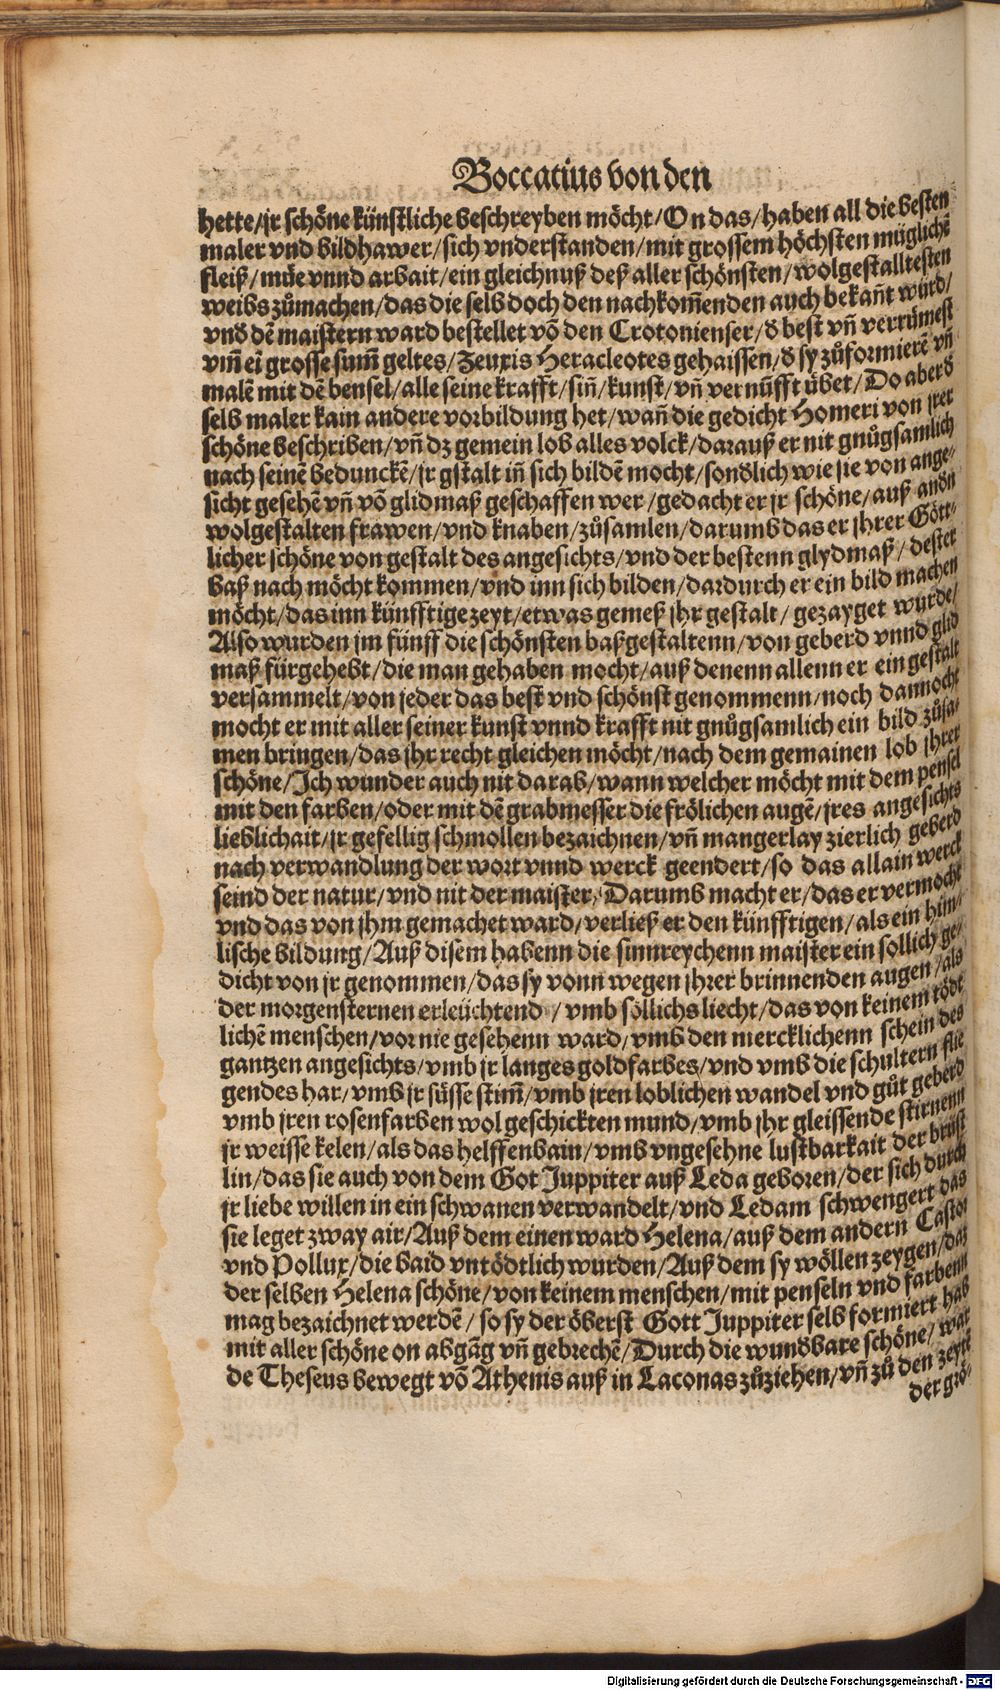 Boccatius von den
hette/jr schöne künstliche beschreyben möcht/On das/haben all die besten
maler vnd bildhawer/sich vnderstanden/mit grossem höchsten müglichẽ
fleiß/müe vnnd arbait/ein gleichnuß deß aller schönsten/wolgestalltesten
weibs zůmachen/das die selb doch den nachkom̃enden auch bekañt würd/
vnd dẽ maistern ward bestellet võ den Crotonienser/d best vñ verrümest
vm̃ eĩ grosse sum̃ geltes/Zeuxis Heracleotes gehaissen/d sy zůformierẽ vñ
malẽ mit dẽ bensel/alle seine krafft/siñ/kunst/vñ vernũfft übet/Do aber d
selb maler kain andere vorbildung het/wañ die gedicht Homeri von jrer
schöne beschriben/vñ dz gemein lob alles volck/darauß er nit gnůgsamlich
nach seinẽ beduncken̄/jr gstalt iñ sich bildẽ mocht/sondlich wie sie von ange-
sicht gesehẽ vñ võ glidmaß geschaffen wer/gedacht er jr schöne/auß andn
wolgestalten frawen/vnd knaben/zůsamlen/darumb das er jhrer Gött-
licher schöne von gestalt des angesichts/vnd der bestenn glydmaß/dester
baß nach möcht kommen/vnd inn sich bilden/dardurch er ein bild machen
möcht/das inn künfftige zeyt/etwas gemeß jhr gestalt/gezayget wurde/
Also wurden jm fünff die schönsten baßgestaltenn/von geberd vnnd glid
maß fürgehebt/die man gehaben mocht/auß denenn allenn er ein gestalt
versammelt/von jeder das best vnd schönst genommenn/noch dannocht
mocht er mit aller seiner kunst vnnd krafft nit gnůgsamlich ein bild zůsa-
men bringen/das jhr recht gleichen möcht/nach dem gemainen lob jhrer
schöne/Ich wunder auch nit darab/wann welcher möcht mit dem pensel
mit den farben/oder mit dẽ grabmesser die frölichen augẽ/jres angesichts
lieblichait/jr gefellig schmollen bezaichnen/vñ mangerlay zierlich geberd
nach verwandlung der wort vnnd werck geendert/so das allain werck
seind der natur/vnd nit der maister/Darumb macht er/das er vermocht
vnd das von jhm gemachet ward/verließ er den künfftigen/als ein him-
lische bildung/Auß disem habenn die sinnreychenn maister ein sollich ge-
dicht von jr genommen/das sy vonn wegen jhrer brinnenden augen/als
der morgensternen erleüchtend/vmb söllichs liecht/das von keinem tödt
lichẽ menschen/vor nie gesehenn ward/vmb den mercklichenn schein des
gantzen angesichts/vmb jr langes goldfarbes/vnd vmb die schultern flie
gendes har/vmb jr süsse stim̃/vmb jren loblichen wandel vnd gůt geberd
vmb jren rosenfarben wol geschickten mund/vmb jhr gleissende stirnenn
jr weisse kelen/als das helffenbain/vmb vngesehne lustbarkait der brüst
lin/das sie auch von dem Got Juppiter auß Leda geboren/der sich durch
jr liebe willen in ein schwanen verwandelt/vnd Ledam schwengert das
sie leget zway air/Auß dem einen ward Helena/auß dem andern Castor
vnd Pollux/die baid vntödtlich wurden/Auß dem sy wöllen zeygen/daz
der selben Helena schöne/von keinem menschen/mit penseln vnd farbenn
mag bezaichnet werdẽ/so sy der öberst Gott Juppiter selb formiert hab
mit aller schöne on abgãg vñ gebrechẽ/Durch die wundbare schöne/war
de Theseus bewegt võ Athenis auß in Laconas zůziehen/vñ zů den zeytt
der grö-
Digitalisierung gefördert durch die Deutsche Forschungsgemeinschaft - DFG